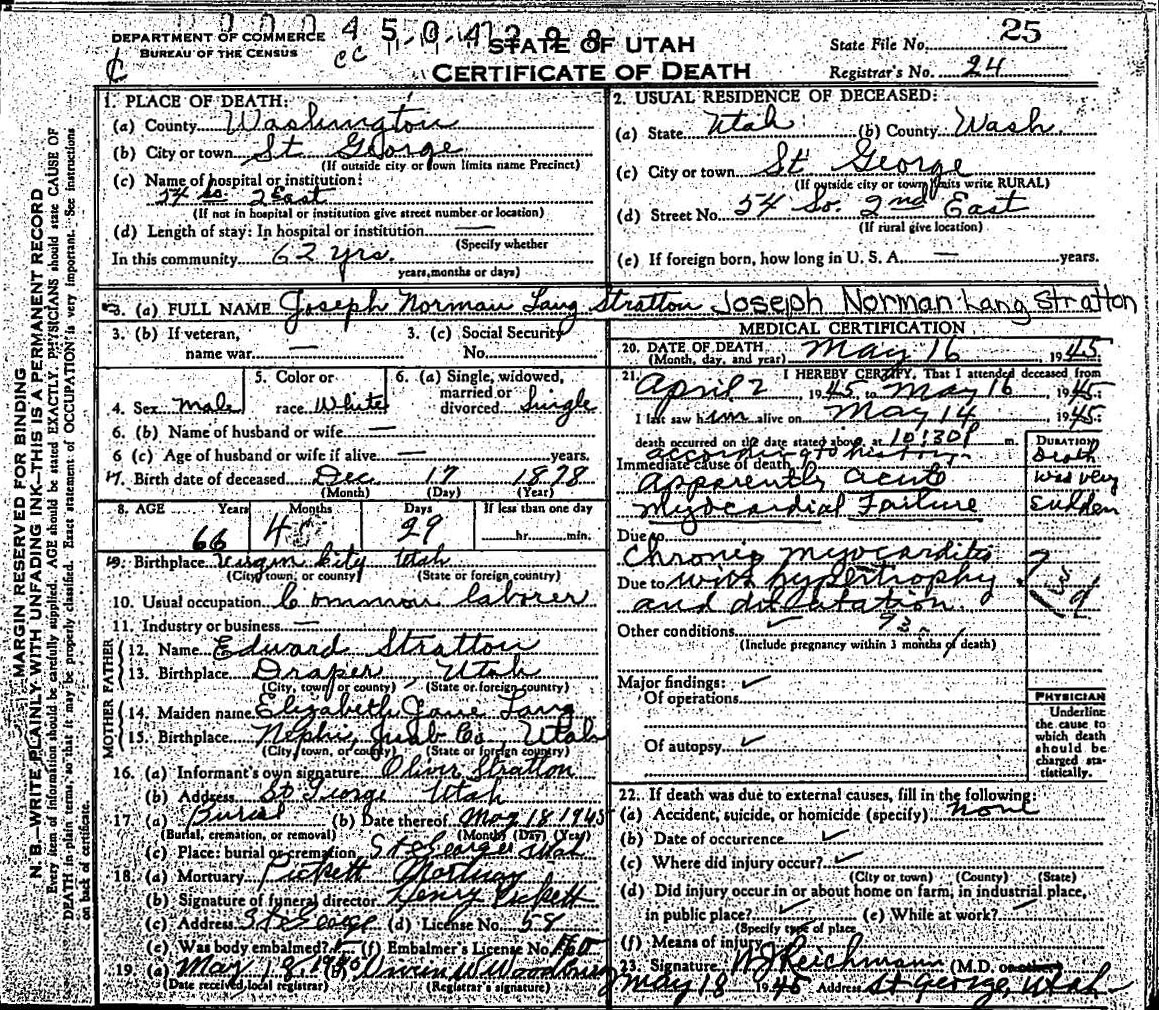 DEPARTMENT OF COMMERCE
BUREAU OF THE CENSUS
STATE OF UTAH
CERTIFICATE OF DEATH
State File No. 25
Registrar's No. 24
MARGIN RESERVED FOR BINDING
N. B.—WRITE PLAINLY WITH UNFADING INK—THIS IS A PERMANENT RECORD
Every item of information should be carefully supplied. AGE should be stated EXACTLY. PHYSICIANS should state CAUSE OF
DEATH in plain terms, so that it may be properly classified. Exact statement of OCCUPATION is very important. See instructions
on back of certificate.
1. PLACE OF DEATH:
(a) County Washington
(b) City or town St George
(If outside city or town limits name Precinct)
(c) Name of hospital or institution:
54 So. 2 East
(If not in hospital or institution give street number or location)
(d) Length of stay: In hospital or institution —
(Specify whether
In this community 62 yrs.
years, months or days)
2. USUAL RESIDENCE OF DECEASED:
(a) State Utah (b) County Wash.
(c) City or town St George
(If outside city or town limits write RURAL)
(d) Street No. 54 So. 2nd East
(If rural give location)
(e) If foreign born, how long in U. S. A. — years.
3. (a) FULL NAME Joseph Norman Lang Stratton Joseph Norman Lang Stratton
3. (b) If veteran,
name war —
3. (c) Social Security
No.
4. Sex male
5. Color or
race White
6. (a) Single, widowed,
married or
divorced Single
6. (b) Name of husband or wife —
6 (c) Age of husband or wife if alive — years.
7. Birth date of deceased Dec. 17 1878
(Month) (Day) (Year)
8. AGE Years Months Days If less than one day
66 4 29 hr. min.
9. Birthplace Virgin City Utah
(City, town, or county) (State or foreign country)
10. Usual occupation Common laborer
11. Industry or business —
FATHER
12. Name Edward Stratton
13. Birthplace Draper, Utah
(City, town, or county) (State or foreign country)
MOTHER
14. Maiden name Elizabeth Jane Lang
15. Birthplace Nephi, Juab Co, Utah
(City, town, or county) (State or foreign country)
16. (a) Informant's own signature Oliver Stratton
(b) Address St George Utah
17. (a) Burial (b) Date thereof May 18 1945
(Burial, cremation, or removal) (Month) (Day) (Year)
(c) Place: burial or cremation St George Utah
18. (a) Mortuary Pickett Mortuary
(b) Signature of funeral director Henry Pickett
(c) Address St George (d) License No. 58
(e) Was body embalmed? (f) Embalmer's License No. 160
19. (a) May 18, 1945 (b) Vivian W Woodbury
(Date received local registrar) (Registrar's signature)
MEDICAL CERTIFICATION
20. DATE OF DEATH May 16 1945
(Month, day, and year)
21. I HEREBY CERTIFY, That I attended deceased from
April 2, 1945, to May 16, 1945;
I last saw him alive on May 14, 1945;
death occurred on the date stated above, at 10:30 P m.
according to history
Immediate cause of death
apparently acute
Myocardial Failure
DURATION
Death
was very
sudden
Due to
Chronic myocarditis
Due to with hypertrophy
and dilatation.
Other conditions
(Include pregnancy within 3 months of death)
Major findings:
Of operations
Of autopsy
PHYSICIAN
Underline
the cause to
which death
should be
charged sta-
tistically.
22. If death was due to external causes, fill in the following:
(a) Accident, suicide, or homicide (specify) none
(b) Date of occurrence
(c) Where did injury occur?
(City or town) (County) (State)
(d) Did injury occur in or about home on farm, in industrial place,
in public place? (e) While at work?
(Specify type of place
(f) Means of injury
23. Signature W J Reichmann (M.D. or other)
May 18 1945 Address St George, Utah